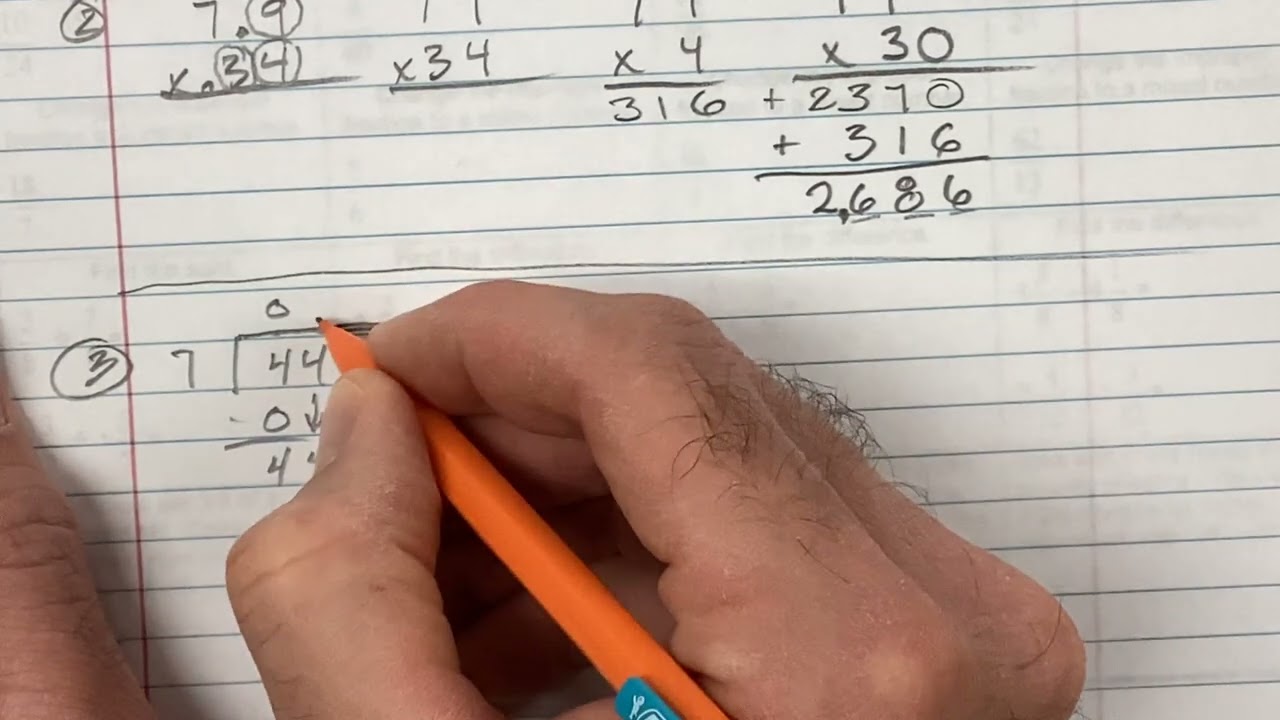 ② 7.9
x.34 x34 x 4 x 30
316 + 2370
+ 316
2,686
0
③ 7 44
- 0↓
4